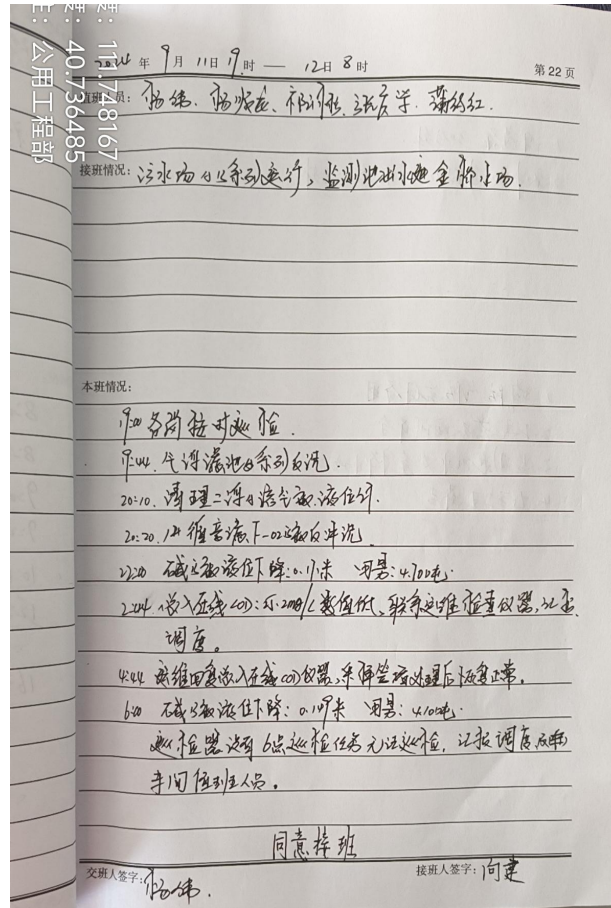 度: 111.748167
度: 40.736485
主: 公用工程部
2024 年 9 月 11 日 19 时 — 12 日 8 时
第 22 页
值班人员: 杨伟、杨
接班情况: 污水场 系列运行, 监测池出水 金 水场.
本班情况:
19:00 各岗按时巡检.
19:44. 气浮滤池 系列反洗.
20:10. 清理二浮 液位计.
20:20. 1# 反冲洗
22:00 碱 液位下降: 0.17米 用量: 4.700吨.
2:44 总入在线COD: 数值低、联系运维检查仪器, 汇报
调度。
4:44 运维回复总入在线COD仪器, 采样管 处理后恢复正常。
6:00 碱 液位下降: 0.149米 用量: 4.100吨.
巡检器没有6点巡检任务无法巡检, 汇报调度及
车间值班人员。
同意接班
交班人签字: 杨伟.
接班人签字: 向建